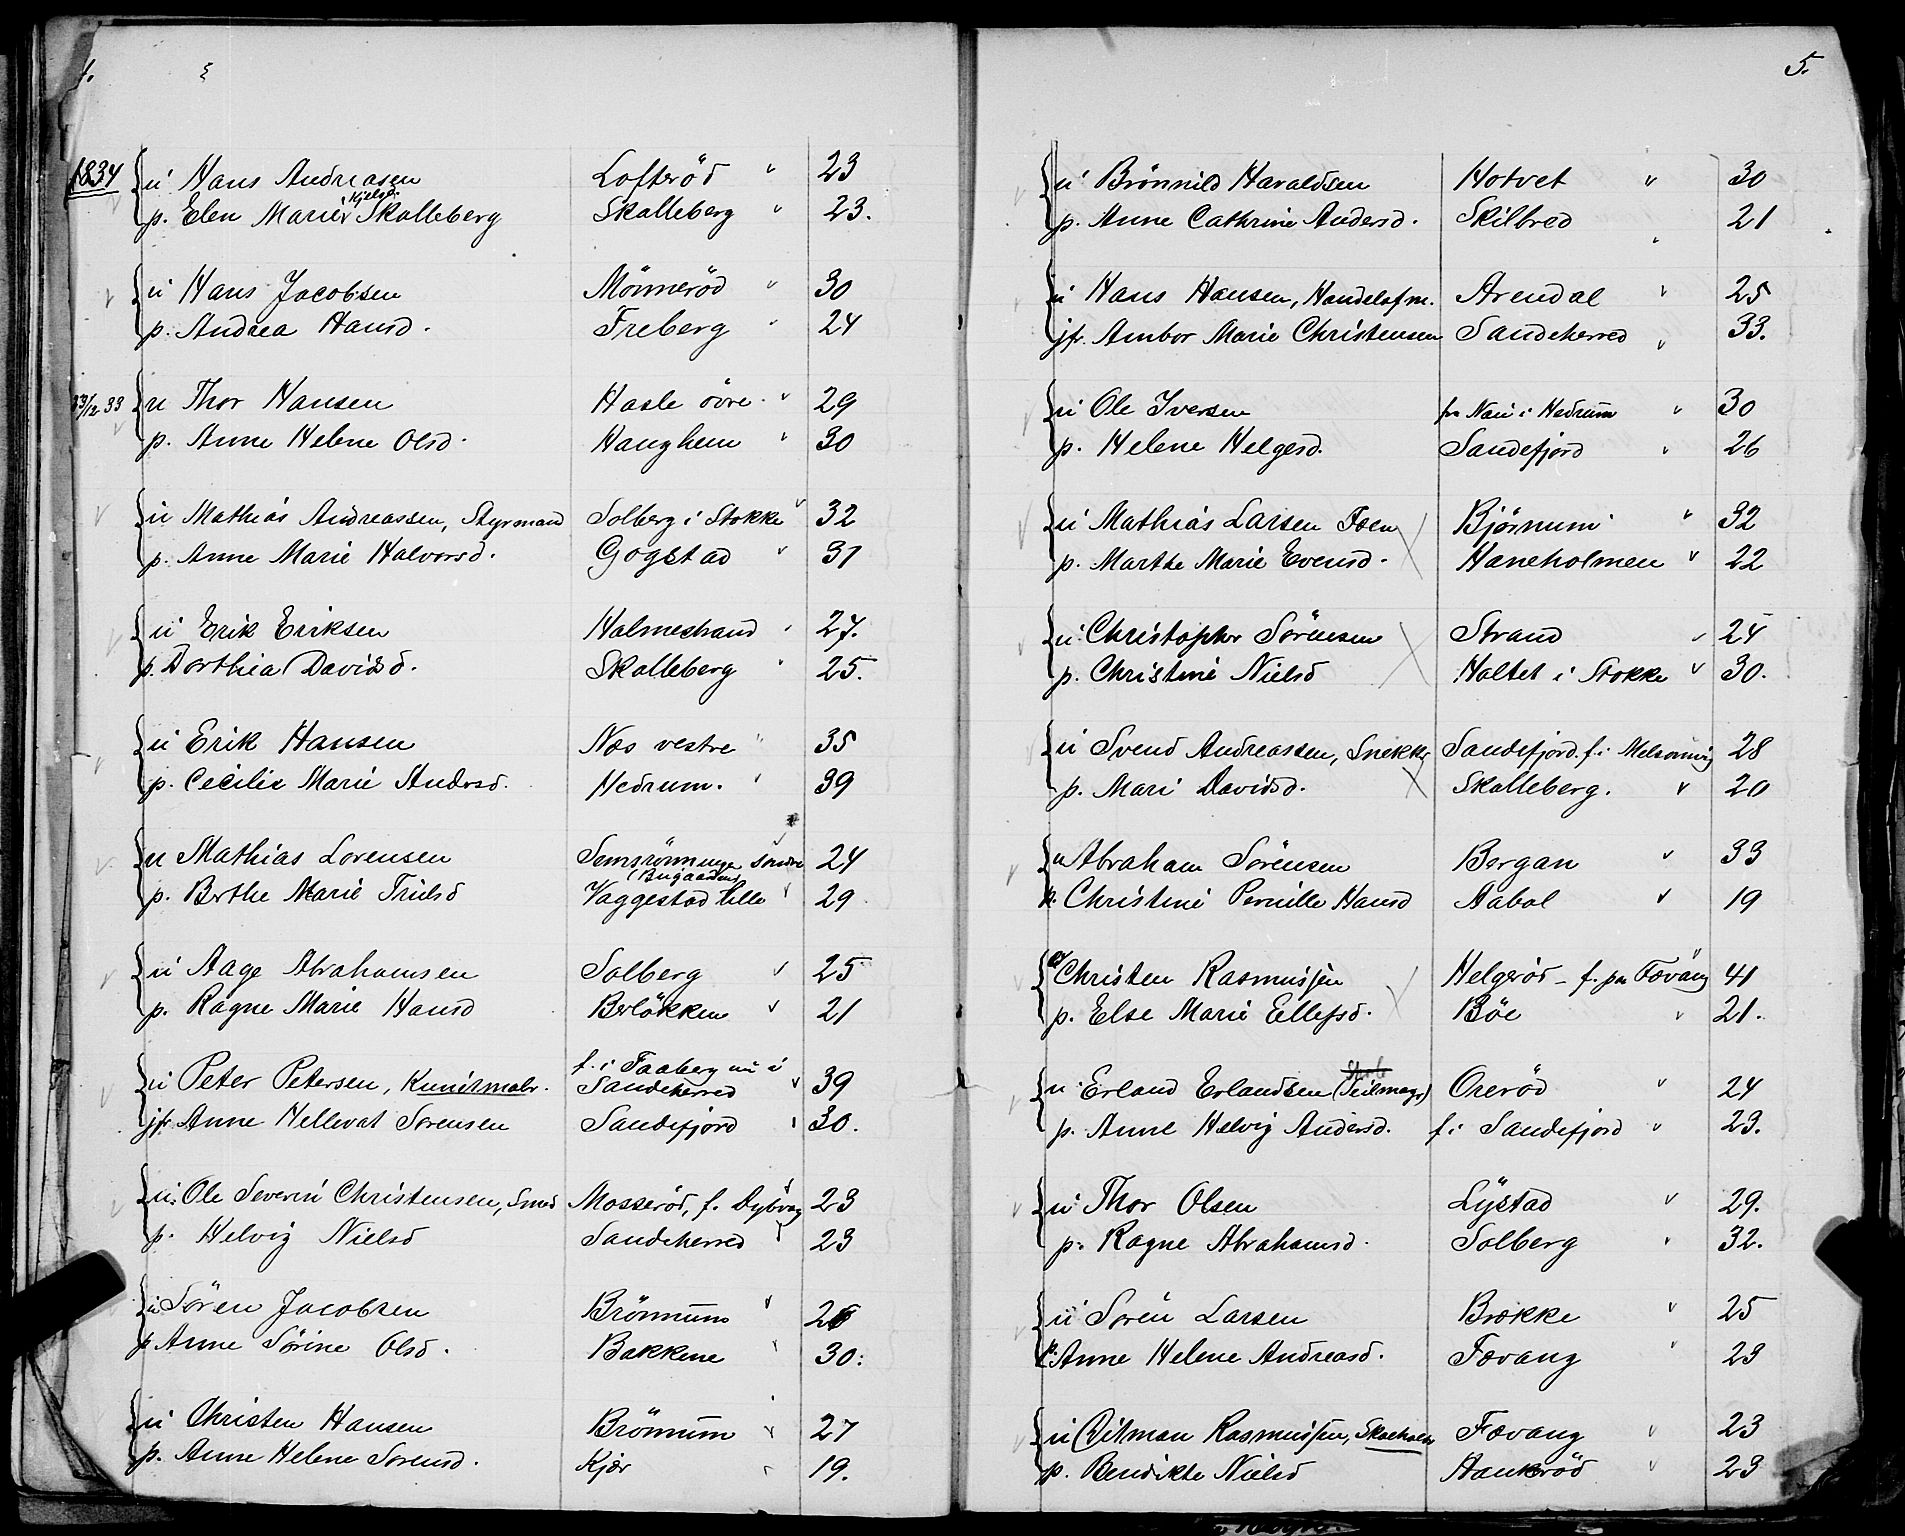 4.
1834 u Hans Andreasen Lofteröd " 23
Kjelsd.
p. Elen Marie Skalleberg Skalleberg " 23.
u Hans Jacobsen Mönneröd " 30
p. Andrea Hansd. Freberg " 24
u Thor Hansen Hasle övre " 29
p. Anne Helene Olsd. Haughem " 30
u Mathias Andreassen, Styrmand Solberg i Stokke " 32
p. Anne Marie Halvorsd. Gogstad " 31
u Erik Eriksen Holmestrand 27.
p. Dorthea Davidsd. Skalleberg 25.
u Erik Hansen Næs vestre " 35
p. Cecilie Marie Andersd. Hedrum. 39
u Mathias Lorensen söndre 24
p. Berthe Marie Trulsd Vaggestad lille 29
u Aage Abrahamsen Solberg 25
p. Ragne Marie Hansd Berlökken 21
f. i Faaberg nu i
u Peter Petersen, Kunstmaler. Sandeherred 39
jfr. Anne Hellevat Sorensen Sandefjord 30.
u. Ole Severin Christensen, Smed Mosseröd, f. Dybvag 23
p. Helvig Nielsd Sandeherred 23
u Sören Jacobsen Brönnum 26
p Anne Sörine Olsd. Bakkene 30.
u Christen Hansen Brönnum 27
p. Anne Helene Sorensd. Kjær 19.
5.
u Brönnild Haraldsen Hotvet " 30
p. Anne Cathrine Andersd. Skilbred 21
u Hans Hansen, Handelsfm. Arendal 25
jfr. Ambor Marie Christensen Sandeherred 33.
u Ole Iversen fra Nau i Hedrum 30
p. Helene Helgesd. Sandefjord 26
u Mathias Larsen Foen Björnum 32
p. Marthe Marie Evensd. Haneholmen 22
u. Christopher Sörensen Strand 24
p. Christine Nielsd Holtet i Stokke 30.
u Svend Andreassen, Snekker Sandefjord. f. i Melsomvig 28
p. Mari Davidsd. Skalleberg. 20
u Abraham Sörensen Bergan 33
p. Christine Pernille Hansd Aabol 19
e Christen Rasmussen Helgeröd - f. pa Fævang 41
p. Else Marie Ellefsd. Böe 21.
u Erland Erlandsen Oreröd 24
p. Anne Helvig Andersd. f. i Sandefjord 23.
u Thor Olsen Lystad 29.
p. Ragne Abrahamsd. Solberg 32.
u Soren Larsen Brekke 25
p. Anne Helene Andreasd. Fævang 23
u Ditman Rasmussen, Skoeholder Fævang 23
p. Bendikte Nielsd Haukeröd 23